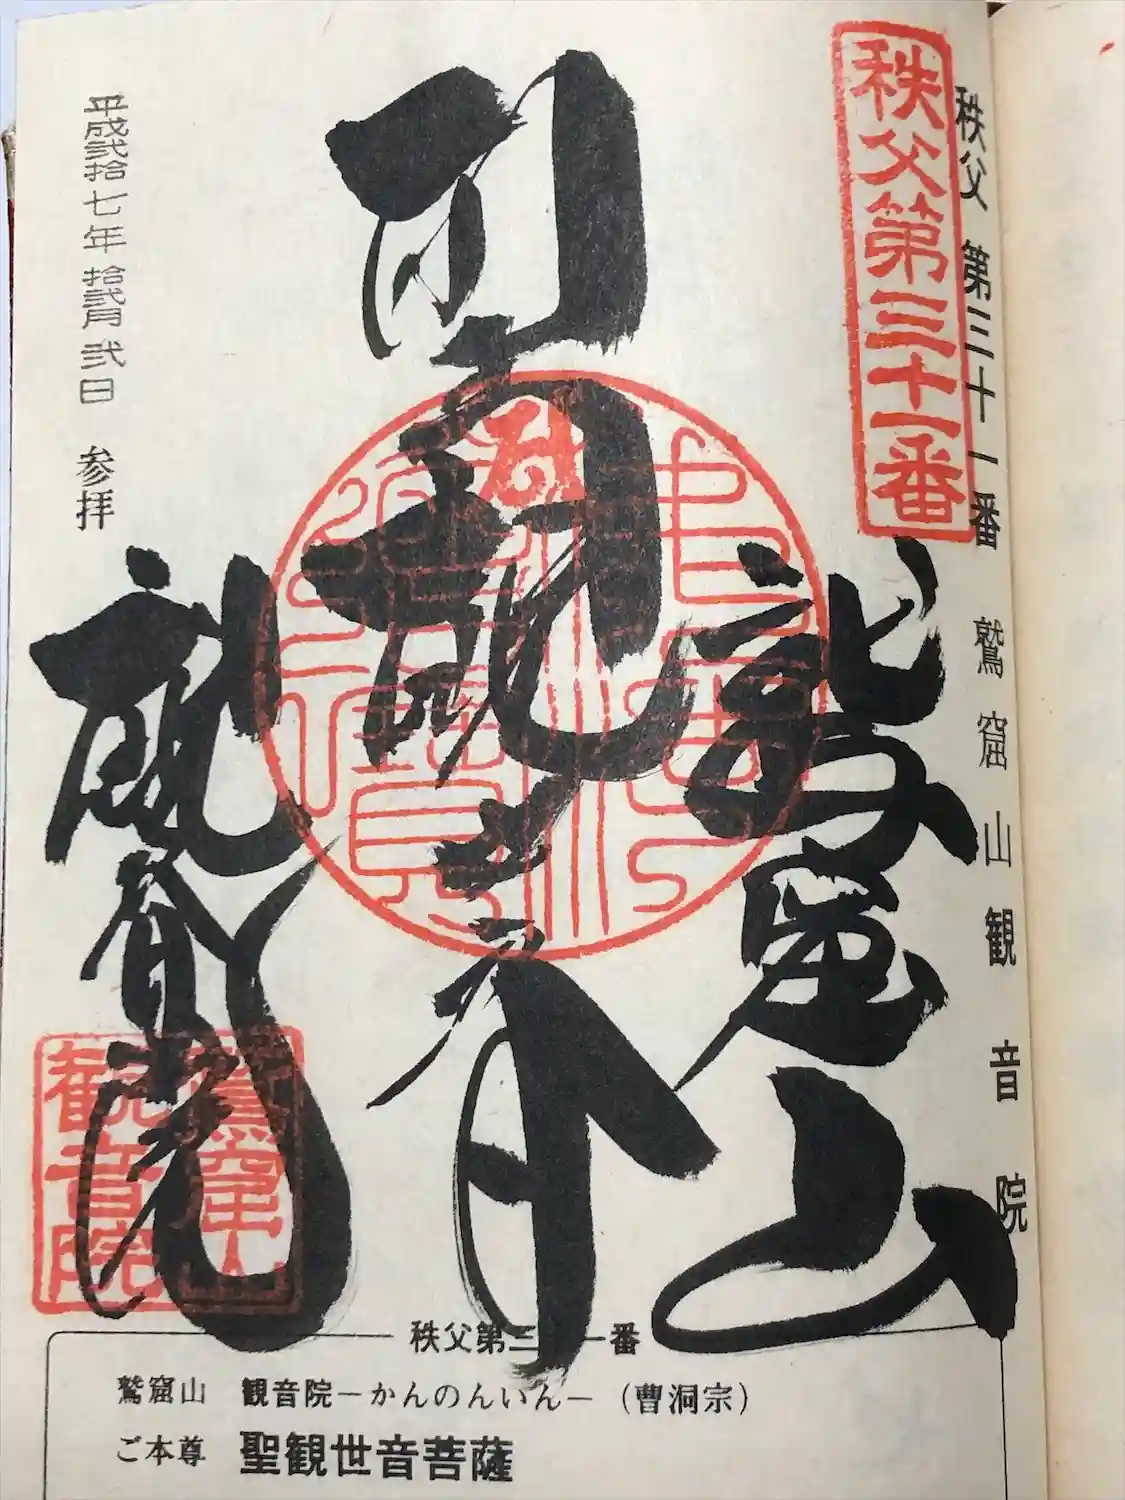 秩父第三十一番
秩父 第三十一番 鷲窟山観音院
鷲窟山
観音院
平成弐拾七年拾弐月弐日 参拝
鷲窟山
観音院
秩父第三十一番
鷲窟山 観音院－かんのんいん－（曹洞宗）
ご本尊 聖観世音菩薩